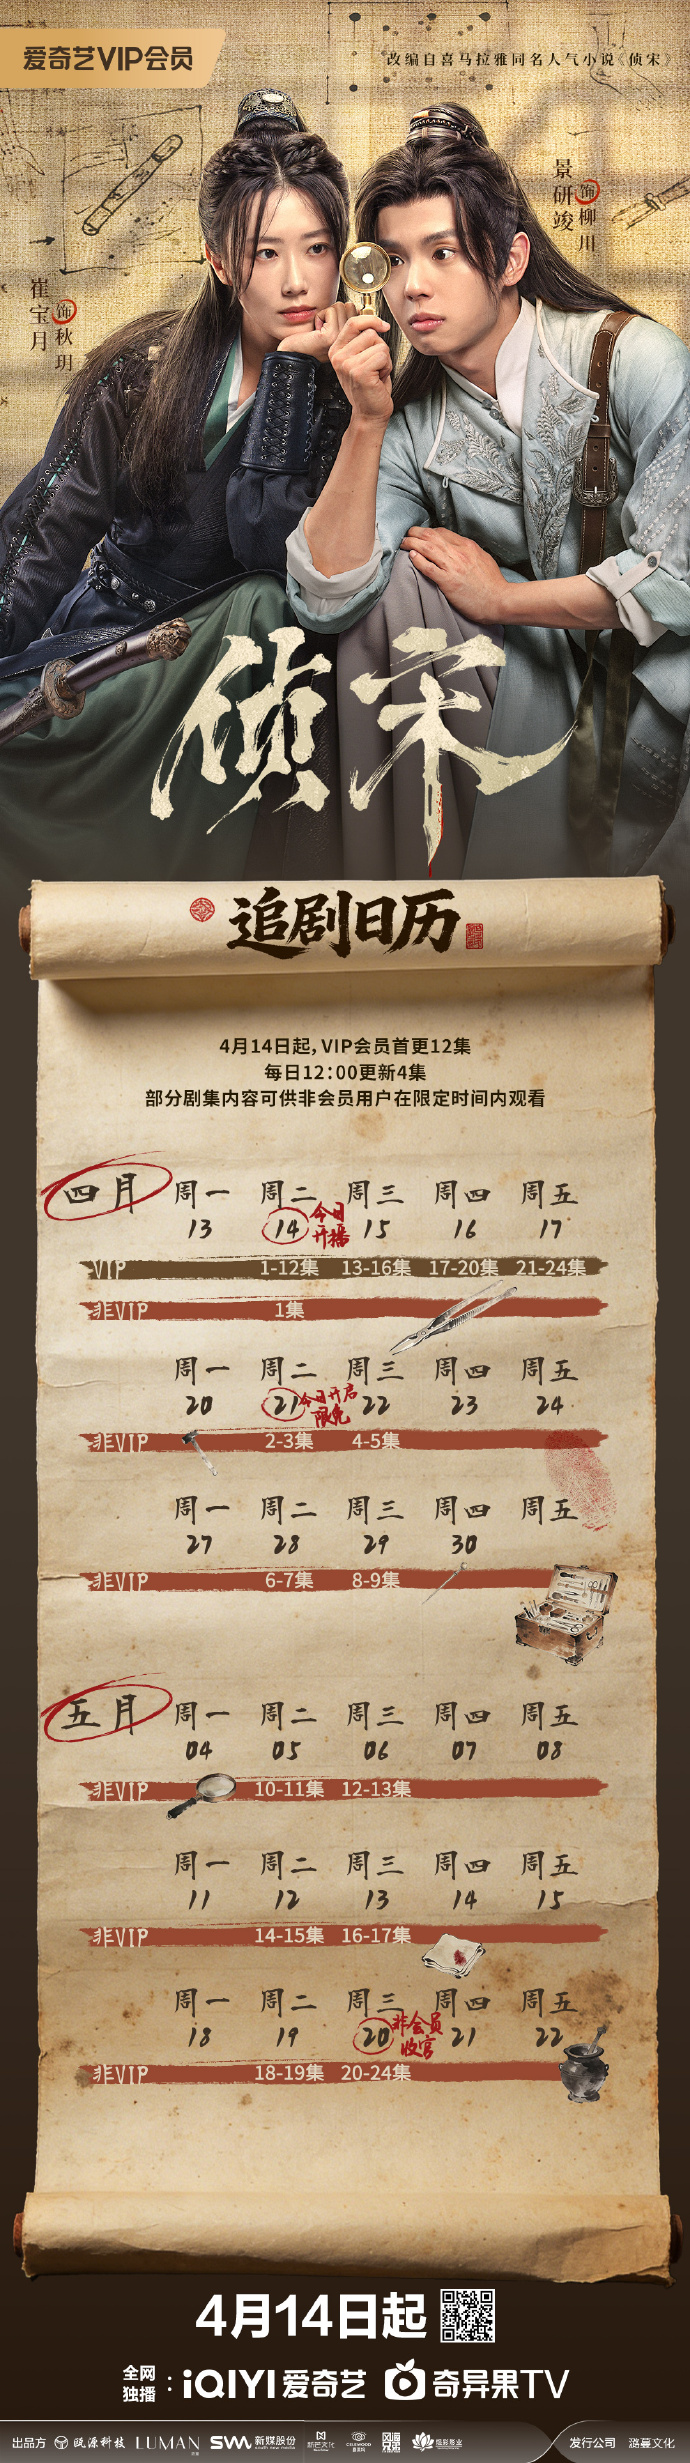 爱奇艺VIP会员
改编自喜马拉雅同名人气小说《侦宋》
景研竣 饰 柳川
崔宝月 饰 秋玥
侦宋
追剧日历
4月14日起，VIP会员首更12集
每日12:00更新4集
部分剧集内容可供非会员用户在限定时间内观看
四月 周一 周二 周三 周四 周五
13 14 今日开播 15 16 17
VIP 1-12集 13-16集 17-20集 21-24集
非VIP 1集
周一 周二 周三 周四 周五
20 21 今日开启限免 22 23 24
非VIP 2-3集 4-5集
周一 周二 周三 周四 周五
27 28 29 30
非VIP 6-7集 8-9集
五月 周一 周二 周三 周四 周五
04 05 06 07 08
非VIP 10-11集 12-13集
周一 周二 周三 周四 周五
11 12 13 14 15
非VIP 14-15集 16-17集
周一 周二 周三 周四 周五
18 19 20 非会员收官 21 22
非VIP 18-19集 20-24集
4月14日起
全网独播：iQIYI爱奇艺 奇异果TV
出品方 瓯源科技 LUMAN SVM 新媒股份 发行公司 潞蔓文化